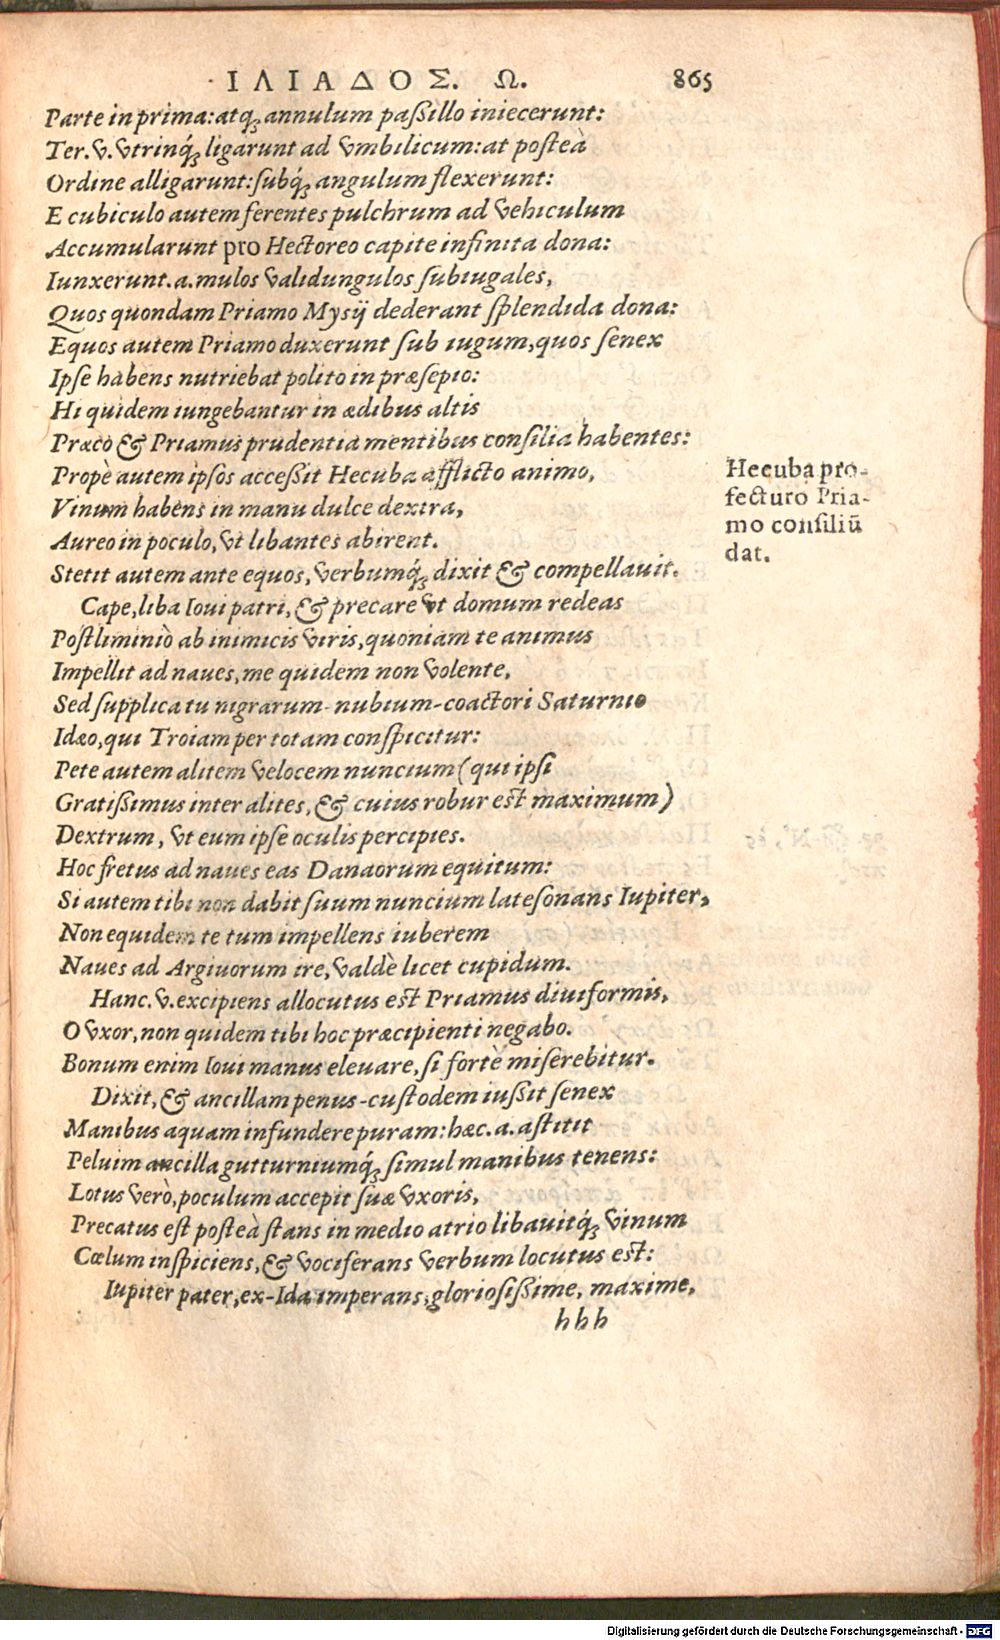 ΙΛΙΑΔΟΣ. Ω. 865
Parte in prima: atq; annulum paßillo iniecerunt:
Ter. v. vtrinq́; ligarunt ad vmbilicum: at posteà
Ordine alligarunt: subq́; angulum flexerunt:
E cubiculo autem ferentes pulchrum ad vehiculum
Accumularunt pro Hectoreo capite infinita dona:
Iunxerunt. a. mulos validungulos subiugales,
Quos quondam Priamo Mysij dederant splendida dona:
Equos autem Priamo duxerunt sub iugum, quos senex
Ipse habens nutriebat polito in præsepio:
Hi quidem iungebantur in ædibus altis
Præco & Priamus prudentia mentibus consilia habentes:
Propè autem ipsos acceßit Hecuba afflicto animo,
Vinum habens in manu dulce dextra,
Aureo in poculo, vt libantes abirent.
Stetit autem ante equos, verbumq́; dixit & compellauit.
Cape, liba Ioui patri, & precare vt domum redeas
Postliminiò ab inimicis viris, quoniam te animus
Impellit ad naues, me quidem non volente,
Sed supplica tu nigrarum-nubium-coactori Saturnio
Idæo, qui Troiam per totam conspicitur:
Pete autem alitem velocem nuncium (qui ipsi
Gratißimus inter alites, & cuius robur est maximum)
Dextrum, vt eum ipse oculis percipies.
Hoc fretus ad naues eas Danaorum equitum:
Si autem tibi non dabit suum nuncium latesonans Iupiter,
Non equidem te tum impellens iuberem
Naues ad Argiuorum ire, valdè licet cupidum.
Hanc. v. excipiens allocutus est Priamus diuiformis,
O vxor, non quidem tibi hoc præcipienti negabo.
Bonum enim Ioui manus eleuare, si fortè miserebitur.
Dixit, & ancillam penus-custodem iußit senex
Manibus aquam infundere puram: hæc. a. astitit
Peluim ancilla gutturniumq́; simul manibus tenens:
Lotus verò, poculum accepit suæ vxoris,
Precatus est posteà stans in medio atrio libauitq́; vinum
Cœlum inspiciens, & vociferans verbum locutus est:
Iupiter pater, ex-Ida imperans, gloriosißime, maxime,
hhh
Hecuba pro-
fecturo Pria-
mo consiliū
dat.
Digitalisierung gefördert durch die Deutsche Forschungsgemeinschaft - DFG